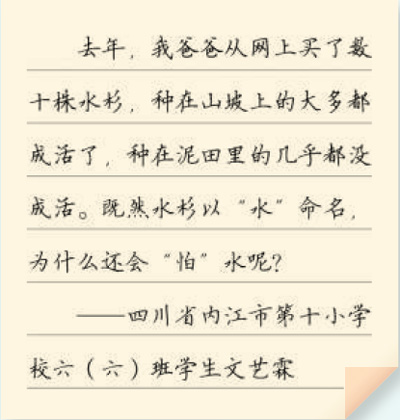 去年，我爸爸从网上买了数
十株水杉，种在山坡上的大多都
成活了，种在泥田里的几乎都没
成活。既然水杉以“水”命名，
为什么还会“怕”水呢？
——四川省内江市第十小学
校六（六）班学生文艺霖